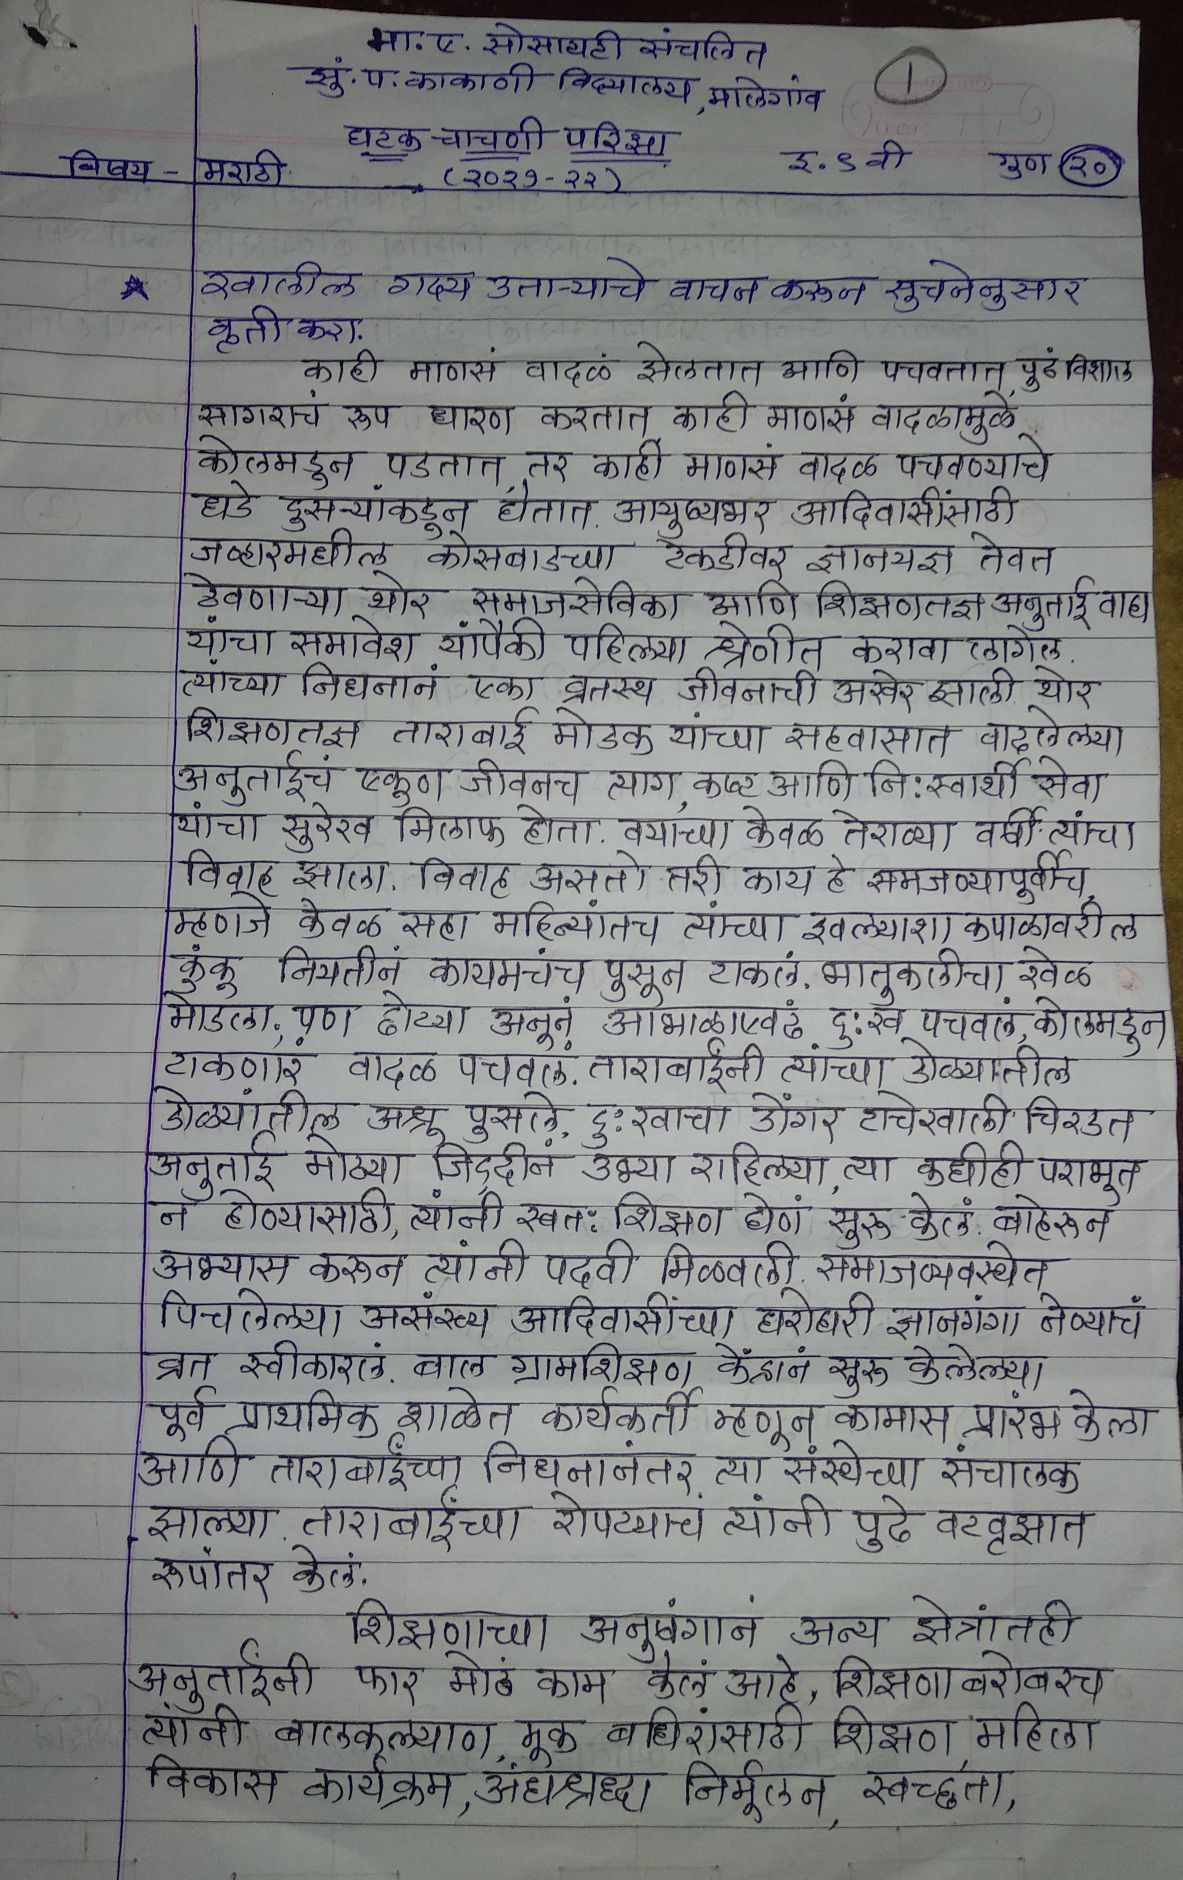 मा. ए. सोसायटी संचलित
झुं. प. काकाणी विद्यालय, मालेगांव
१
घटक चाचणी परिक्षा
विषय - मराठी (२०२१-२२) इ. ९ वी गुण २०
★ खालील गद्य उताऱ्याचे वाचन करून सुचनेनुसार
कृती करा.
काही माणसं वादळं झेलतात आणि पचवतात, पुढं विशाल
सागराचं रूप धारण करतात काही माणसं वादळामुळे
कोलमडून पडतात, तर काही माणसं वादळ पचवण्याचे
धडे दुसऱ्यांकडून घेतात. आयुष्यभर आदिवासींसाठी
जव्हारमधील कोसबाडच्या टेकडीवर ज्ञानयज्ञ तेवत
ठेवणाऱ्या थोर समाजसेविका आणि शिक्षणतज्ञ अनुताई वाघ
यांचा समावेश यांपैकी पहिल्या श्रेणीत करावा लागेल.
त्यांच्या निधनानं एका व्रतस्थ जीवनाची अखेर झाली थोर
शिक्षणतज्ञ ताराबाई मोडक यांच्या सहवासात वाढलेल्या
अनुताईचं एकूण जीवनच त्याग, कष्ट आणि नि:स्वार्थी सेवा
यांचा सुरेख मिलाफ होता. वयाच्या केवळ तेराव्या वर्षी त्यांचा
विवाह झाला. विवाह असतो तरी काय हे समजण्यापूर्वीच,
म्हणजे केवळ सहा महिन्यांतच त्यांच्या इवल्याशा कपाळावरील
कुंकू नियतीनं कायमचंच पुसून टाकलं. भातुकलीचा खेळ
मोडला, पण छोट्या अनूनं आभाळाएवढं दु:ख पचवलं, कोलमडून
टाकणारं वादळ पचवलं. ताराबाईंनी त्यांच्या डोळ्यातील
डोळ्यांतील अश्रू पुसले, दु:खाचा डोंगर टाचेखाली चिरडत
अनुताई मोठ्या जिद्दीनं उभ्या राहिल्या, त्या कधीही पराभूत
न होण्यासाठी, त्यांनी स्वत: शिक्षण घेणं सुरू केलं. बाहेरून
अभ्यास करून त्यांनी पदवी मिळवली. समाजव्यवस्थेत
पिचलेल्या असंख्य आदिवासींच्या घरोघरी ज्ञानगंगा नेण्याचं
व्रत स्वीकारलं. बाल ग्रामशिक्षण केंद्रानं सुरू केलेल्या
पूर्व प्राथमिक शाळेत कार्यकर्ती म्हणून कामास प्रारंभ केला
आणि ताराबाईंच्या निधनानंतर त्या संस्थेच्या संचालक
झाल्या. ताराबाईंच्या रोपट्याचं त्यांनी पुढे वटवृक्षात
रूपांतर केलं.
शिक्षणाच्या अनुषंगानं अन्य क्षेत्रांतही
अनुताईंनी फार मोठं काम केलं आहे, शिक्षणाबरोबरच
त्यांनी बालकल्याण, मूक बधिरांसाठी शिक्षण, महिला
विकास कार्यक्रम, अंधश्रद्धा निर्मूलन, स्वच्छता,